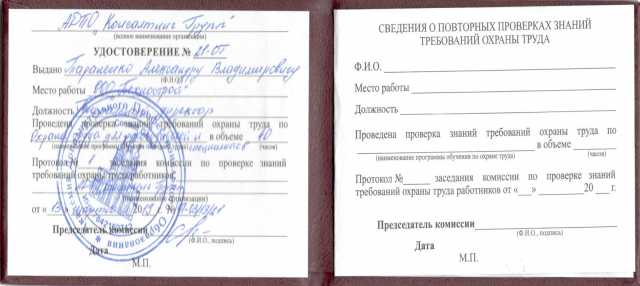 АРТО "Консалтинг Групп"
(полное наименование организации)
УДОСТОВЕРЕНИЕ № 21-ОТ
Выдано Тараненко Александру Владимировичу
(Ф.И.О.)
Место работы ООО "Технострой"
Должность директор
Проведена проверка знаний требований охраны труда по
Охране труда для и специалистов в объеме 40
(наименование программы обучения по охране труда) (часов)
Протокол № 1 заседания комиссии по проверке знаний
требований охраны труда работников
(наименование организации)
от « 13 » 20 г. №
Председатель комиссии
(Ф.И.О., подпись)
Дата
М.П.
СВЕДЕНИЯ О ПОВТОРНЫХ ПРОВЕРКАХ ЗНАНИЙ
ТРЕБОВАНИЙ ОХРАНЫ ТРУДА
Ф.И.О.
Место работы
Должность
Проведена проверка знаний требований охраны труда по
в объеме
(наименование программы обучения по охране труда) (часов)
Протокол № заседания комиссии по проверке знаний
требований охраны труда работников от « » 20 г.
Председатель комиссии
(Ф.И.О., подпись)
Дата
М.П.